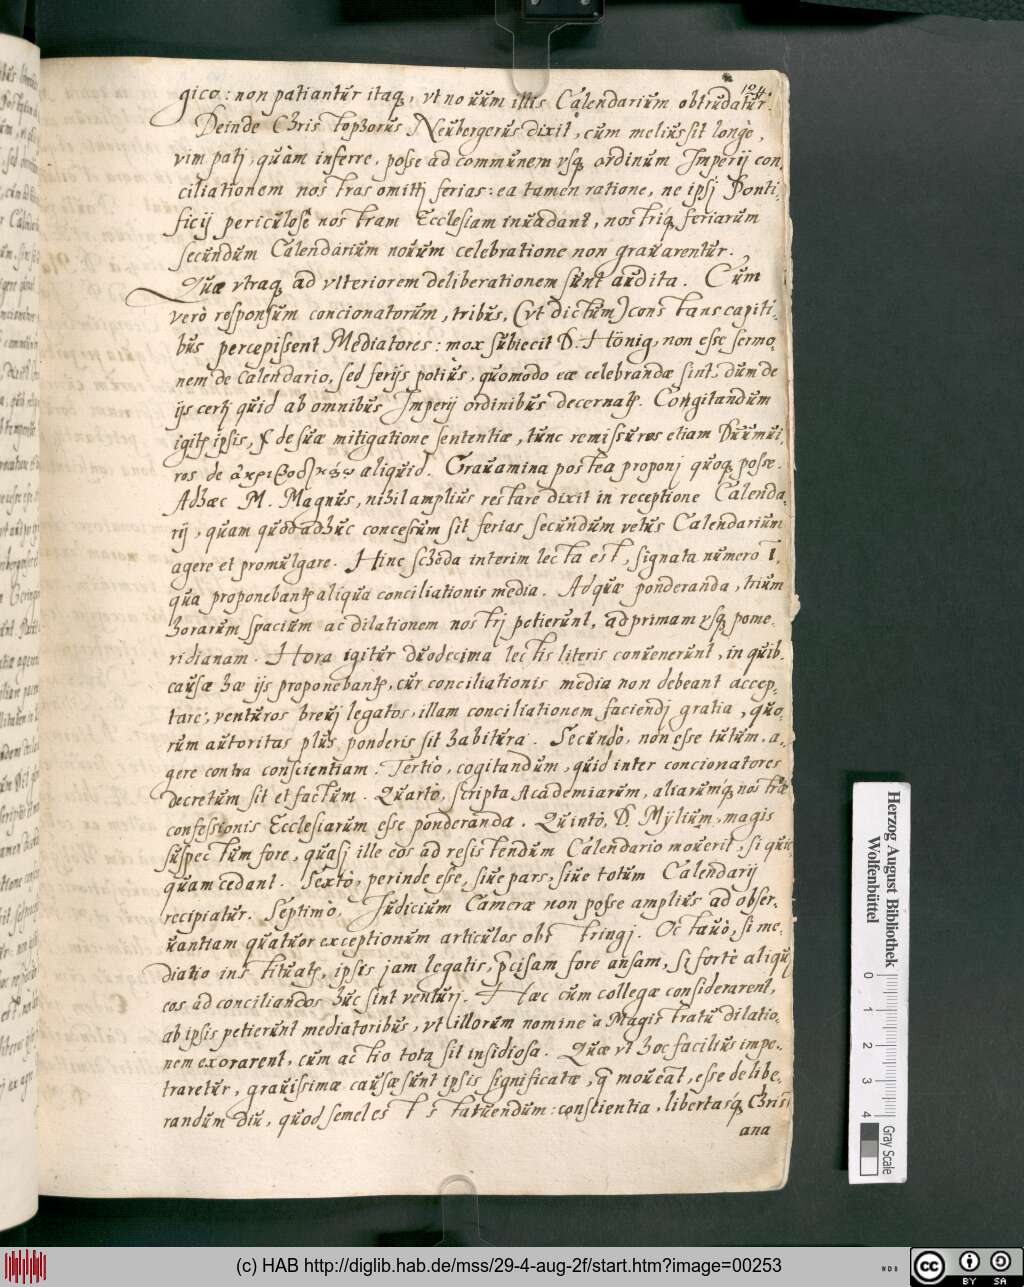 124.
gico: non patiantur itaq, vt nouum illis Calendarium obtrudatur.
Deinde Christophorus Neubergerus dixit, cum melius sit longè,
vim pati, quàm inferre, posse ad communem vsq ordinum Imperij con,
ciliationem nostras omitti ferias: ea tamen ratione, ne ipsi Ponti-
ficij periculosè nostram Ecclesiam inuadant, nostriq feriarum
secundum Calendarium nouum celebratione non grauarentur.
Quæ vtraq ad vlteriorem deliberationem sunt audita. Cum
verò responsum concionatorum, tribus, (vt dictum) constans capiti-
bus percepissent Mediatores: mox subiecit D. Hönig, non esse sermo-
nem de Calendario, sed ferijs potiùs, quomodo eæ celebrandæ sint, dum de
ijs certi quid ab omnibus Imperij ordinibus decernat. Congitandum
igit ipsis, & de suæ mitigatione sententiæ, tunc remissuros etiam Duumui,
ros de aliquid. Grauamina postea proponi quoq posse.
Adhæc M. Magnus, nihil amplius restare dixit in receptione Calenda-
rij, quam quod adhuc concessum sit ferias secundum vetus Calendarium
agere et promulgare. Hinc scheda interim lecta est, signata numero 1.
qua proponebant aliqua conciliationis media. Ad quæ ponderanda, trium
horarum spacium ac dilationem nostri petierunt, ad primam vsq pome-
ridianam. Hora igitur duodecima lectis literis conuenerunt, in quib.
causæ hæ ijs proponebant, cur conciliationis media non debeant accep-
tare, venturos breui legatos, illam conciliationem faciendi gratia, quo-
rum autoritas plus ponderis sit habitura. Secundò, non esse tutum, a-
gere contra conscientiam. Tertiò, cogitandum, quid inter concionatores
decretum sit et factum. Quartò, scripta Academiarum, aliarumq nostræ
confessionis Ecclesiarum esse ponderanda. Quintò, D. Mÿlium, magis
suspectum fore, quasi ille eos ad resistendum Calendario mouerit, si quic
quam cedant. Sextò, perinde esse, siue pars, siue totum Calendarij
recipiatur. Septimò, Iudicium Cameræ non posse amplius ad obser-
uantiam quatuor exceptionum articulos obstringi. Octauò, si me-
diatio instituat, ipsis jam legatis, pcisam fore ansam, si fortè aliqui
eos ad conciliandos huc sint venturi. Hæc cum collegæ considerarent,
ab ipsis petierunt mediatoribus, vt illorum nomine a Magistratu dilatio-
nem exorarent, cum actio tota sit insidiosa. Quæ vt hoc facilius impe-
traretur, grauissimæ causæ sunt ipsis significatæ, q moueat, esse delibe-
randum diu, quod semel est statuendum: conscientia, libertasq Christi
ana
Herzog August Bibliothek
Wolfenbüttel
0 1 2 3 4
Gray Scale
(c) HAB http://diglib.hab.de/mss/29-4-aug-2f/start.htm?image=00253
cc BY SA